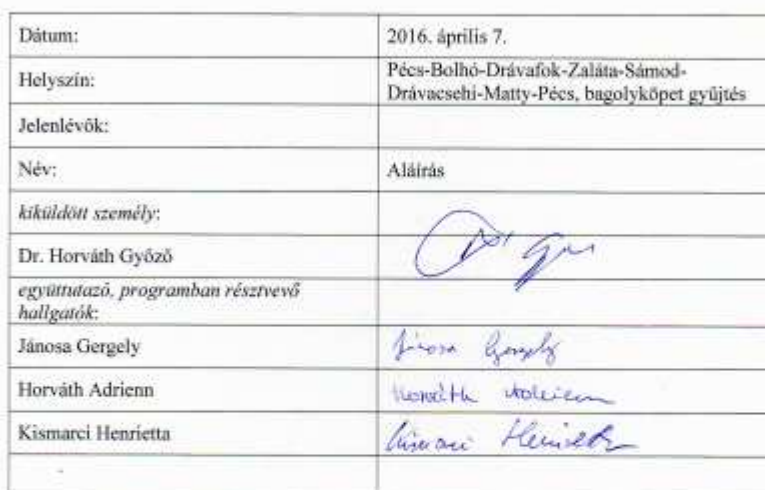 Dátum: 2016. április 7.
Helyszín: Pécs-Bolhó-Drávafok-Zaláta-Sámod-
Drávacsehi-Matty-Pécs, bagolyköpet gyűjtés
Jelenlévők:
Név: Aláírás
kiküldött személy:
Dr. Horváth Győző
együttutazó, programban résztvevő
hallgatók:
Jánosa Gergely Jánosa Gergely
Horváth Adrienn Horváth Adrienn
Kismarci Henrietta Kismarci Henrietta